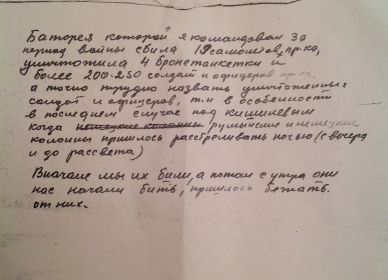 Баторея которой я командовал за
период войны сбила 18 самолётов, пр-ка,
уничтожила 4 бронетанкетки и
более 200-250 солдат и офицеров пр-ка.
а точно трудно назвать уничтоженных
солдат и офицеров, т.к в особенности
в последнем случае под Кишинёвым
когда немецкие колонны румынские и немецкие
колонны пришлось расстреливать ночью (с вечера
и до рассвета)
Вначале мы их били, а потом с утра они
нас начали бить, пришлось бежать
от них.